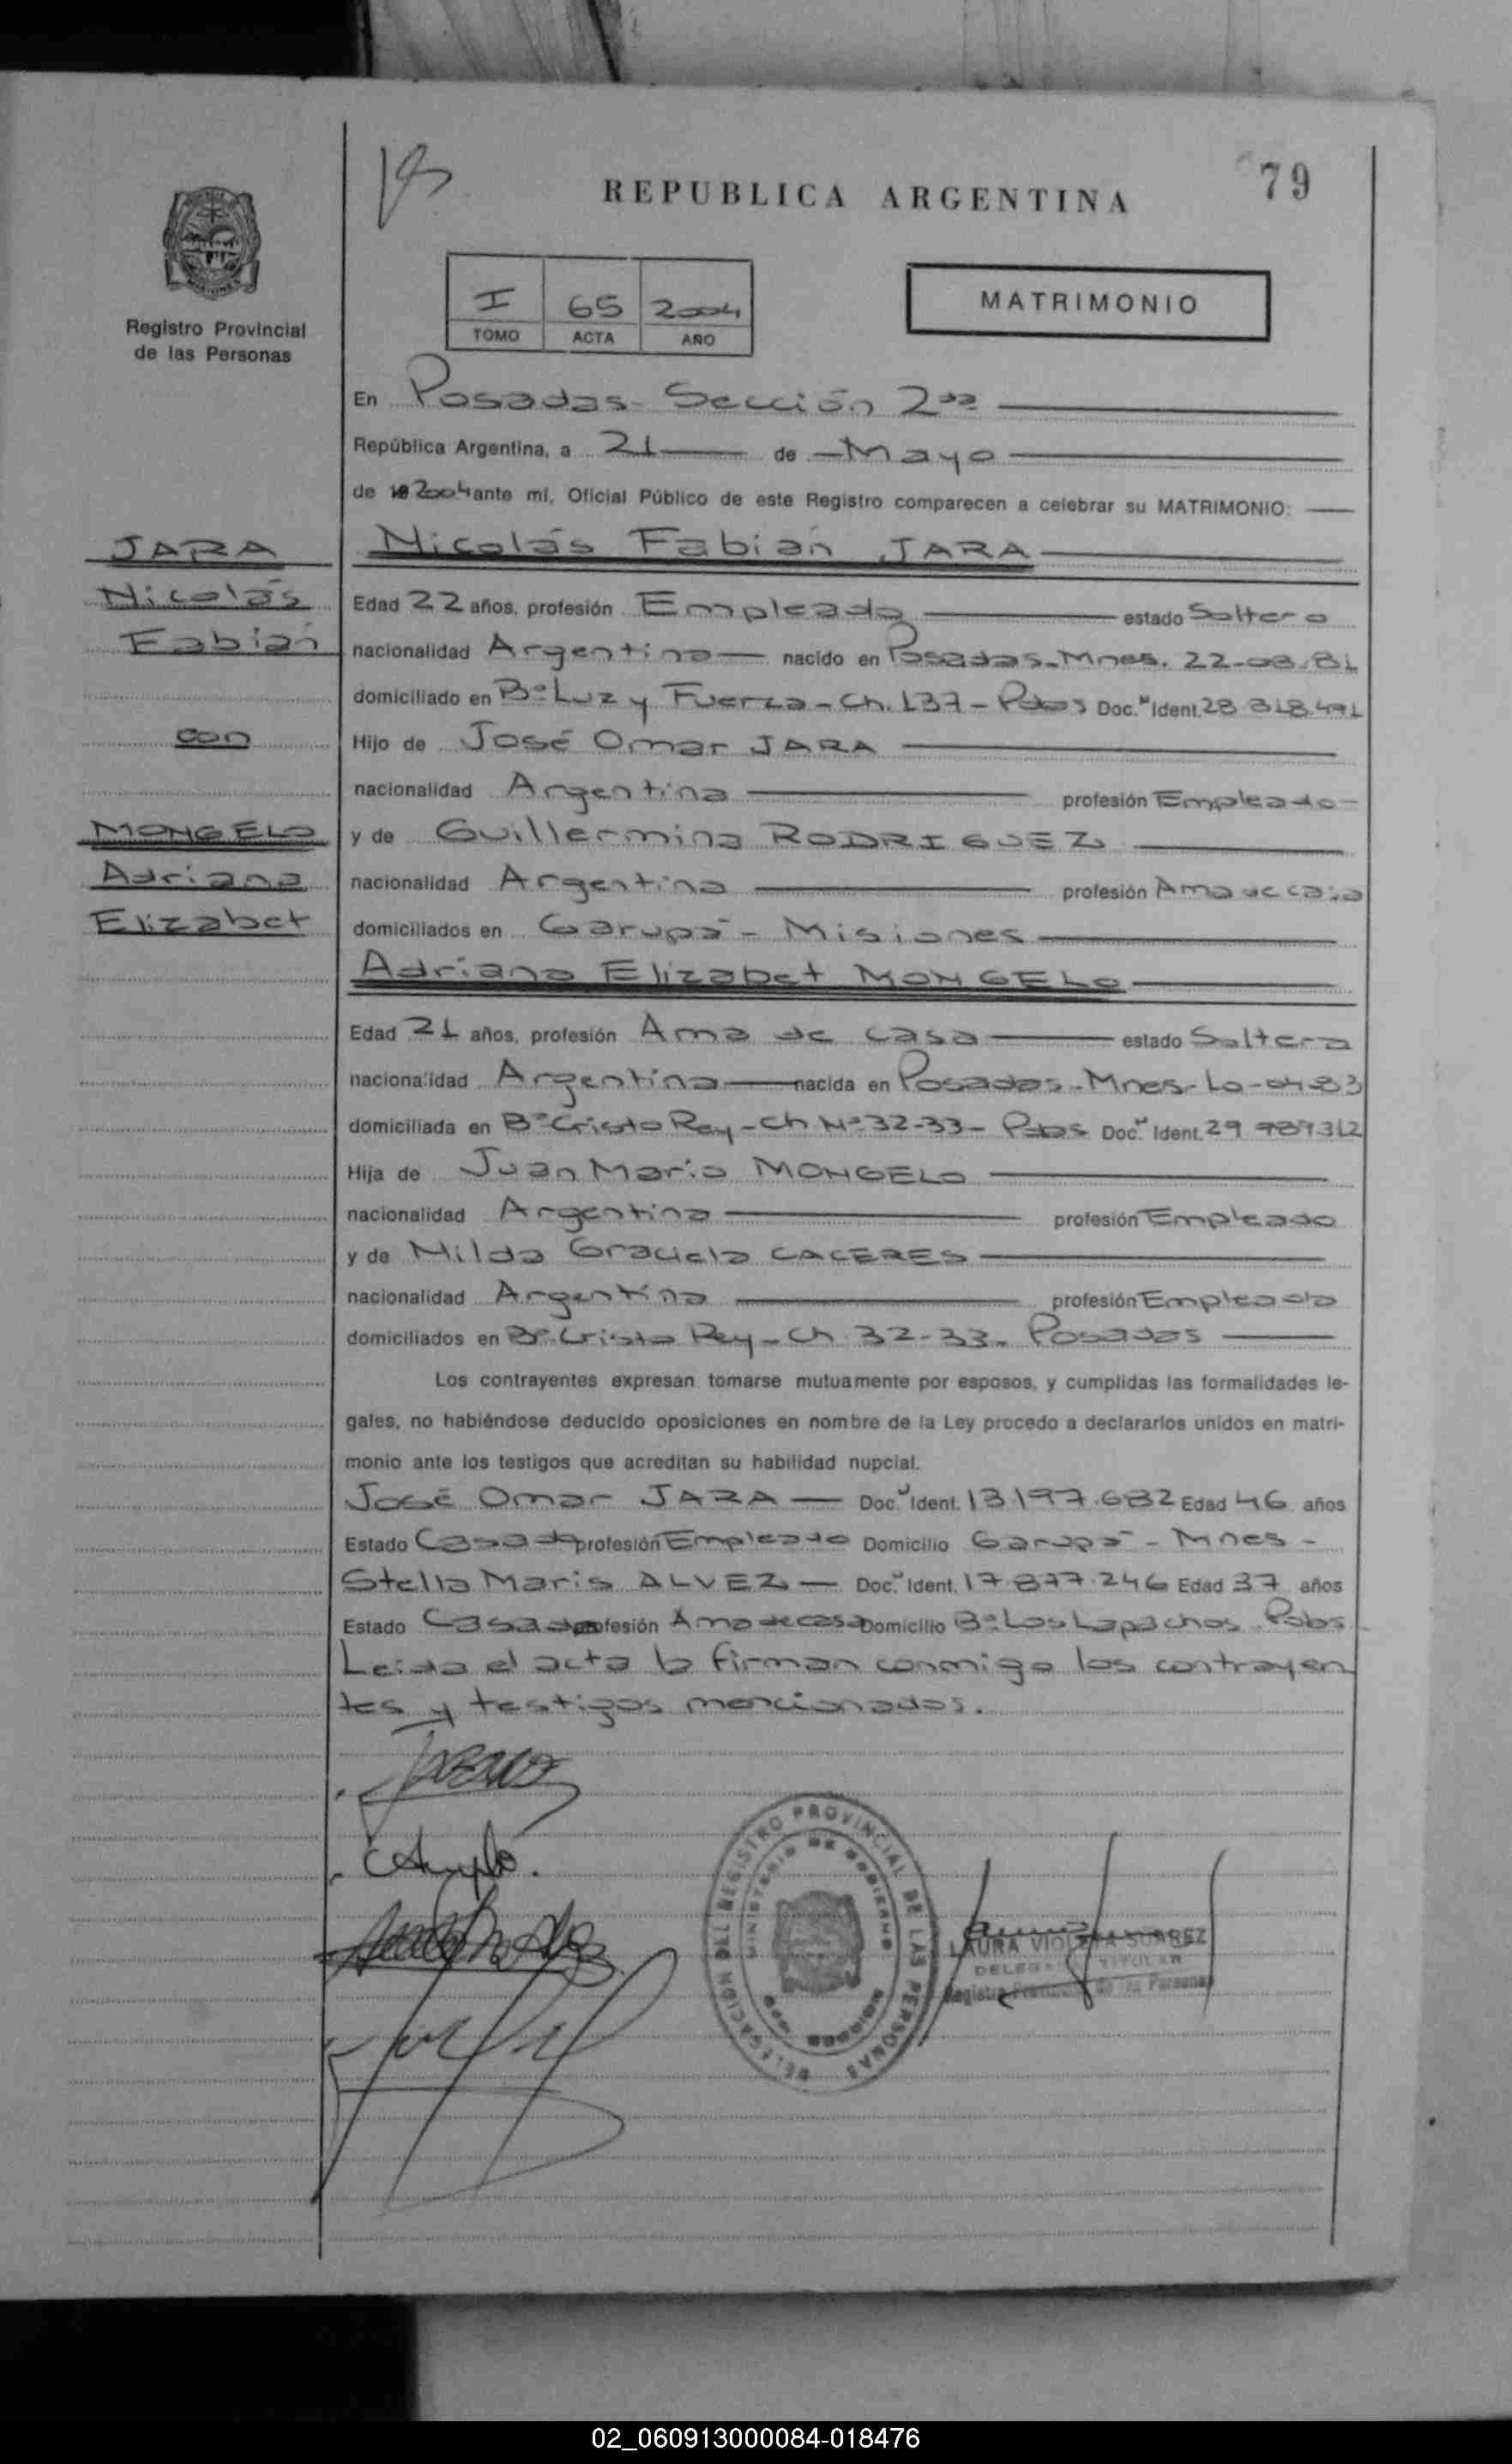 79
REPUBLICA ARGENTINA
Registro Provincial
de las Personas
I 65 2004
TOMO ACTA AÑO
MATRIMONIO
En Posadas - Sección 2da
República Argentina, a 21 de Mayo
de 19 2004 ante mí, Oficial Público de este Registro comparecen a celebrar su MATRIMONIO:
JARA
Nicolás
Fabián
con
MONGELO
Adriana
Elizabet
Nicolás Fabián JARA
Edad 22 años, profesión Empleado estado Soltero
nacionalidad Argentina nacido en Posadas-Mnes. 22-08-81
domiciliado en Bº Luz y Fuerza - Ch. 137 - Pdas Doc. N Ident. 28 818.491
Hijo de José Omar JARA
nacionalidad Argentina profesión Empleado-
y de Guillermina RODRIGUEZ
nacionalidad Argentina profesión Ama de casa
domiciliados en Garupá - Misiones
Adriana Elizabet MONGELO
Edad 21 años, profesión Ama de casa estado Soltera
nacionalidad Argentina nacida en Posadas-Mnes-10-04-83
domiciliada en Bº Cristo Rey - Ch Nº 32-33 - Pdas Doc. N Ident. 29
Hija de Juan Mario MONGELO
nacionalidad Argentina profesión Empleado
y de Nilda Graciela CACERES
nacionalidad Argentina profesión Empleada
domiciliados en Bº Cristo Rey - Ch 32-33- Posadas
Los contrayentes expresan tomarse mutuamente por esposos, y cumplidas las formalidades le-
gales, no habiéndose deducido oposiciones en nombre de la Ley procedo a declararlos unidos en matri-
monio ante los testigos que acreditan su habilidad nupcial.
José Omar JARA Doc. N Ident. 13.197.682 Edad 46 años
Estado Casado profesión Empleado Domicilio Garupá - Mnes -
Stella Maris ALVEZ Doc. N Ident. 17.877.246 Edad 37 años
Estado Casada profesión Ama de casa Domicilio Bº Los Lapachos. Pdas
Leida el acta la firman conmigo los contrayen
tes y testigos mencionados.
DELEGACION DEL REGISTRO PROVINCIAL DE LAS PERSONAS
MINISTERIO DE GOBIERNO
LAURA VIOLETA SUAREZ
DELEGADA TITULAR
Registro Provincial de las Personas
02_060913000084-018476